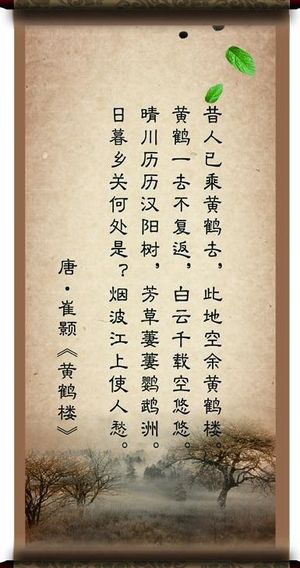 昔人已乘黄鹤去，此地空余黄鹤楼。
黄鹤一去不复返，白云千载空悠悠。
晴川历历汉阳树，芳草萋萋鹦鹉洲。
日暮乡关何处是？烟波江上使人愁。
唐·崔颢《黄鹤楼》